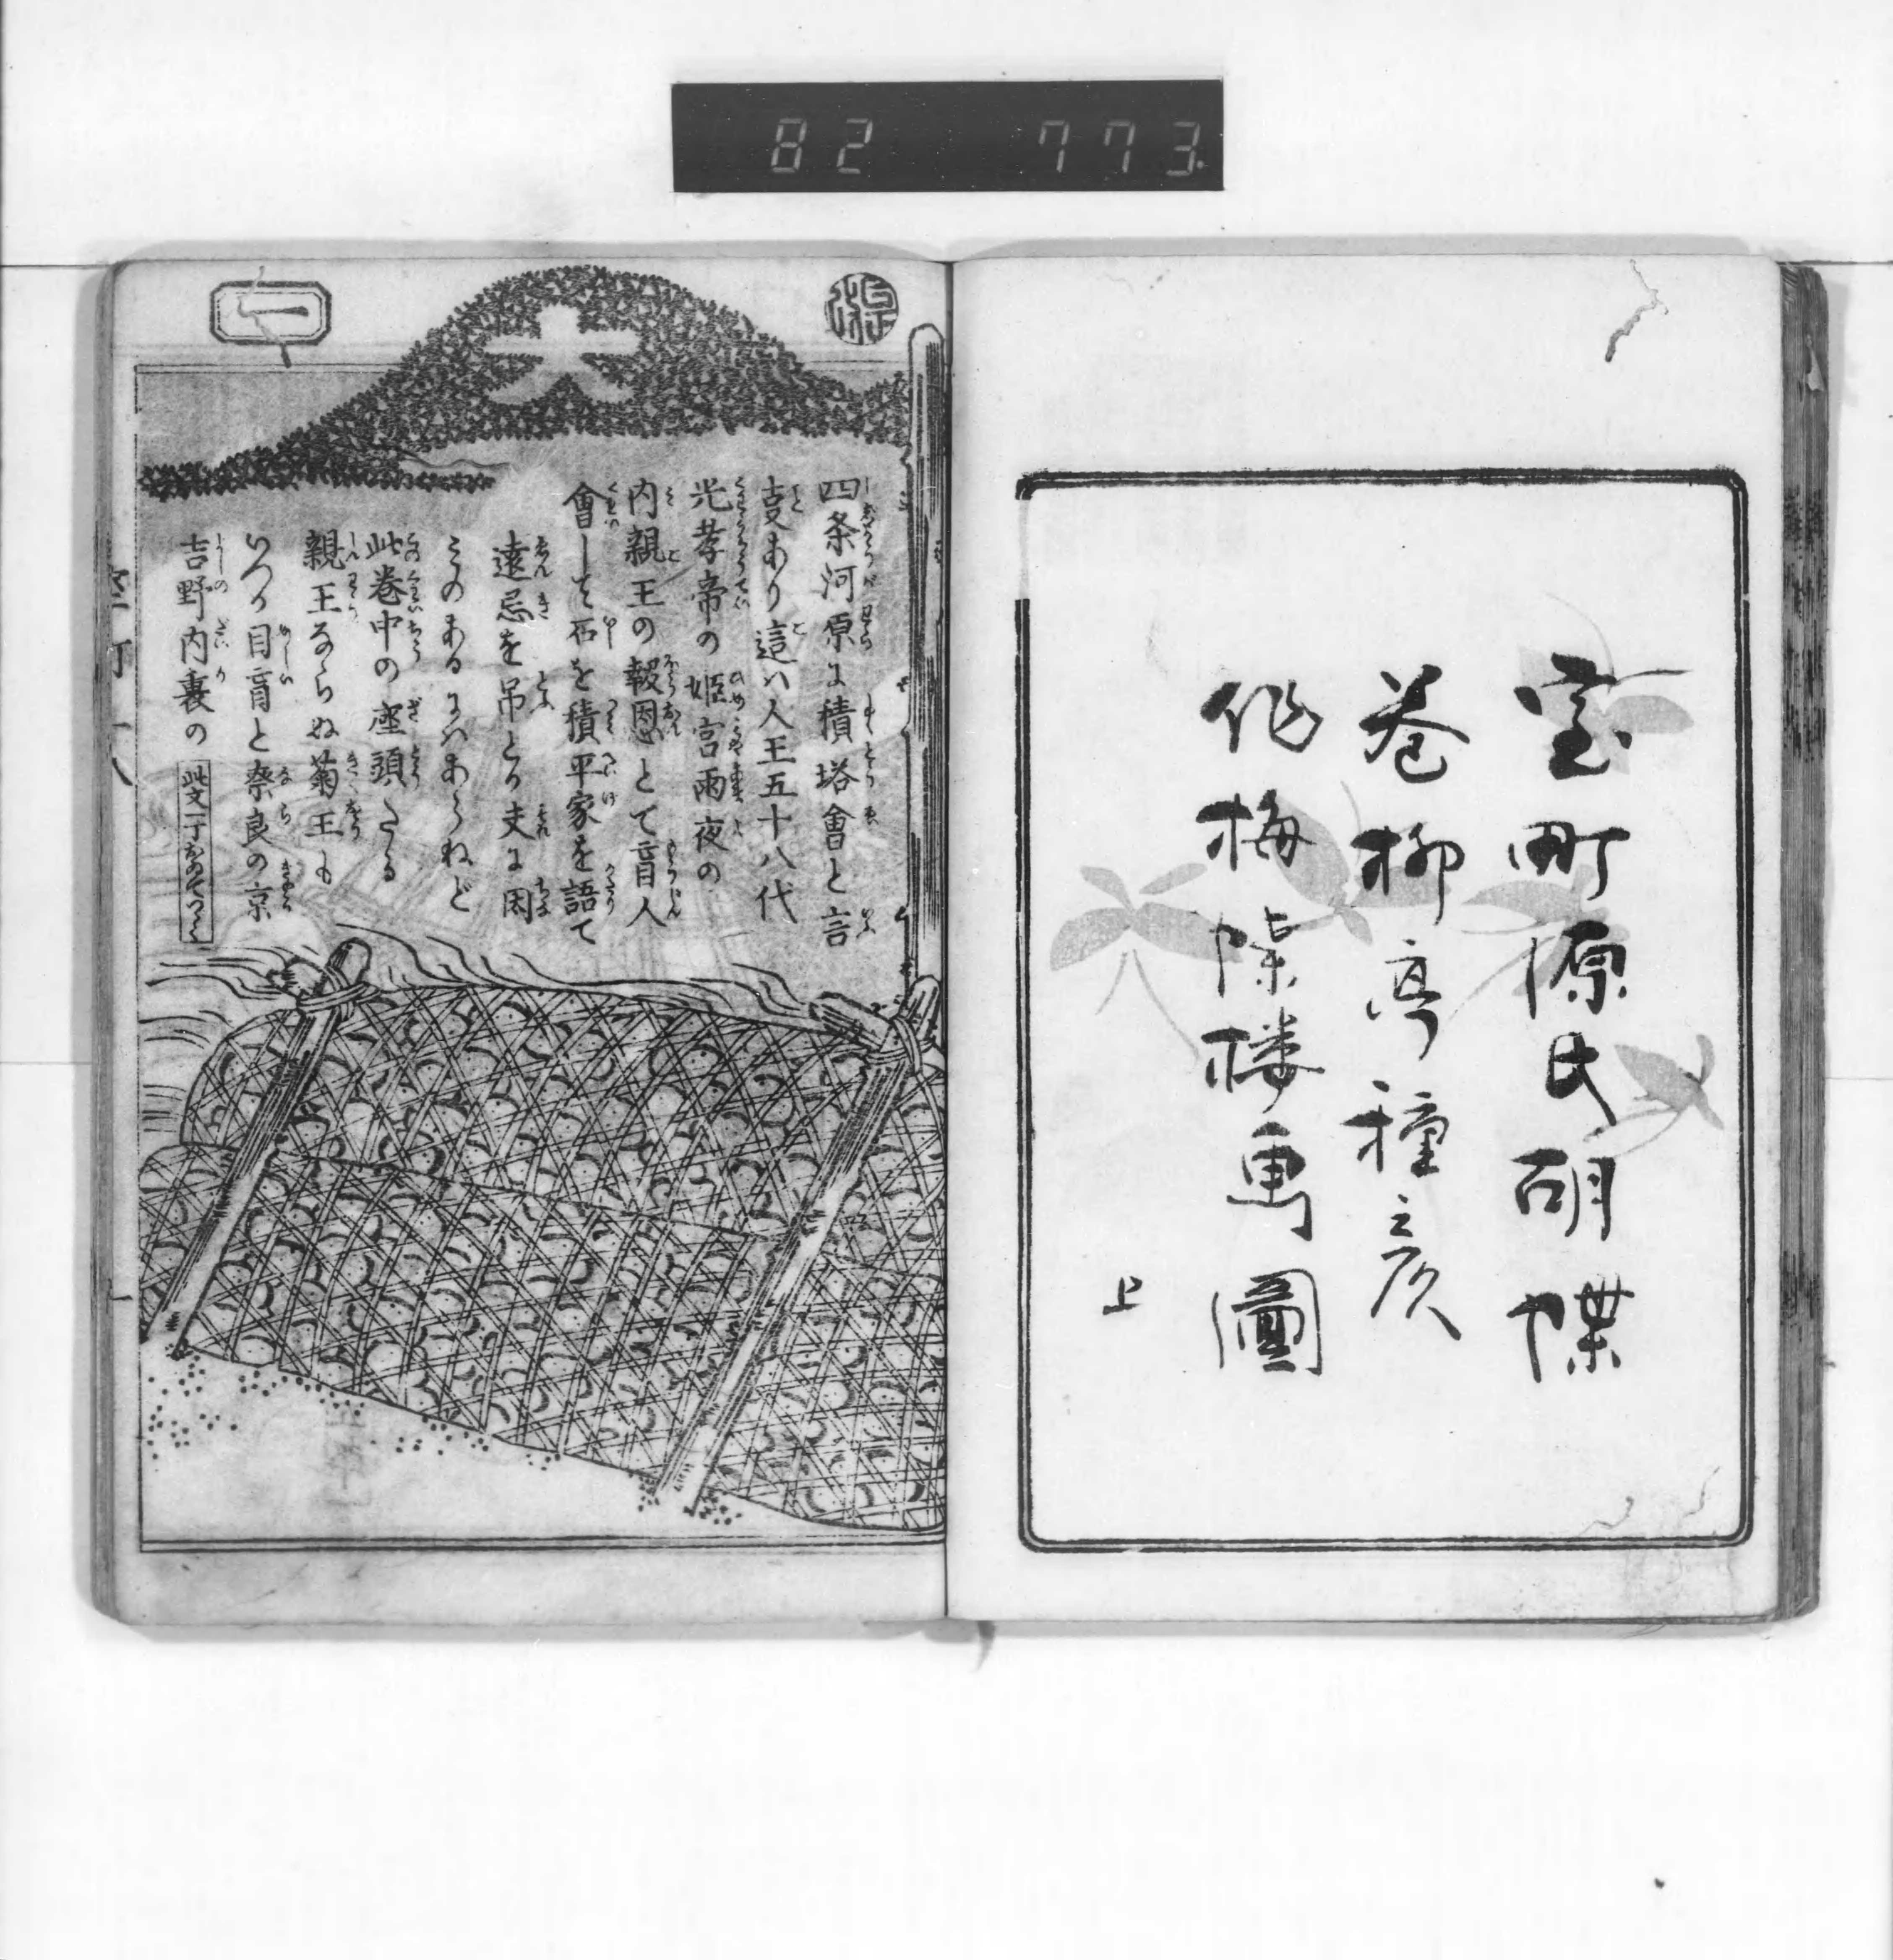 82 773
室町源氏胡蝶
巻柳亭種彦
作梅蝶楼画圖
上
一
四条河原に積塔會と言
支あり這ハ人王五十八代
光孝帝の姫宮雨夜の
内親王の報恩とて盲人
會して石を積平家を語て
遠忌を吊とか夫に因
このあるにハあらねど
此巻中の座頭たる
親王ならぬ菊王も
いつか目盲と奈良の京
吉野内裏の